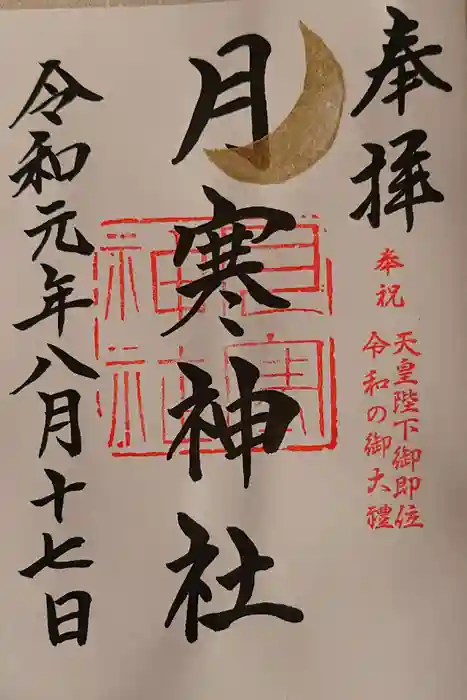 奉拝
奉祝
天皇陛下御即位
令和の御大禮
月寒神社
月寒神社
令和元年八月十七日